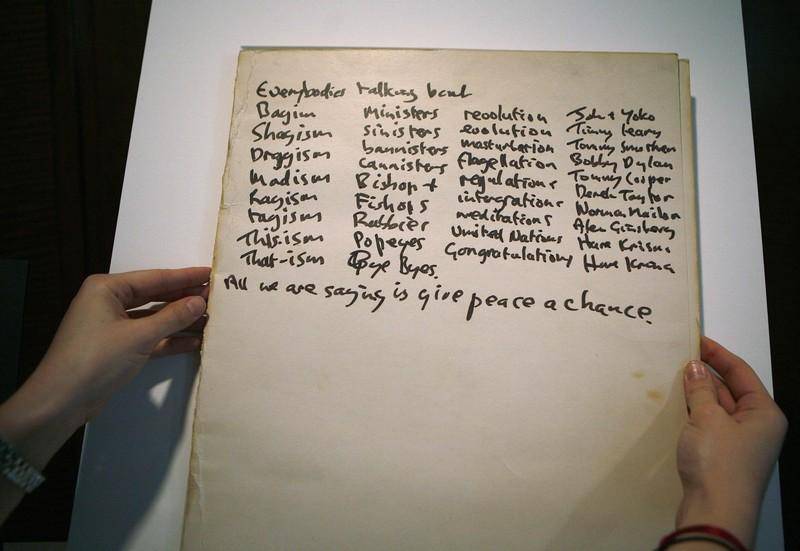 Everybodies talking bout
Bagism
Shagism
Dragism
Madism
Ragism
Tagism
This-ism
That-ism
Ministers
sinisters
bannisters
cannisters
Bishops
Fishops
Rabbies
Popeyes
Bye Byes.
revolution
evolution
masturbation
flagellation
regulations
integrations
meditations
United Nations
Congratulations
John + Yoko
Timmy Leary
Tommy Smothers
Bobby Dylan
Tommy Cooper
Derek Taylor
Norman Mailer
Alen Ginsberg
Hare Krisna
Hare Krisna
All we are saying is give peace a chance.